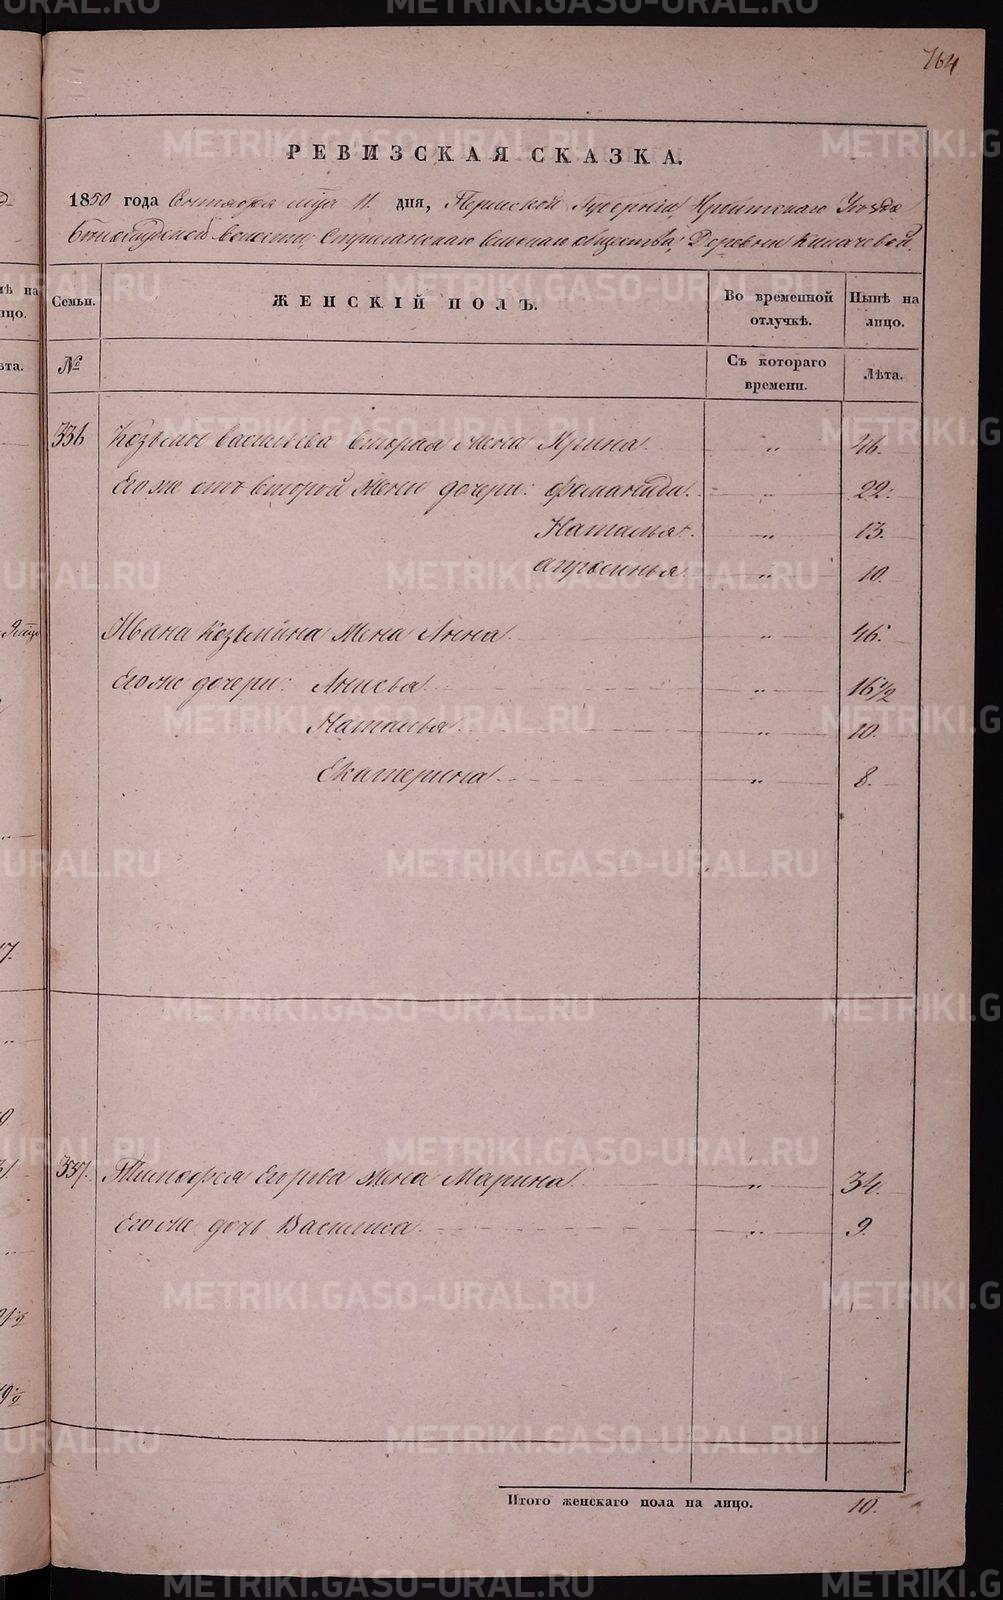 764
РЕВИЗСКАЯ СКАЗКА.
1850 года Октября мца 11. дня, Пермской Губернии, Ирбитскаго Уезда
волости, Стриганскаго сельскаго общества, Деревни Килачевой.
Семьи.
ЖЕНСКІЙ ПОЛЪ.
Во временной отлучкѣ.
Нынѣ на лицо.
№
Съ котораго времени.
Лѣта.
336 Козьмы Васильева вторая жена Ирина „ 46.
Его же отъ второй жены дочери: „ 22.
Наталья „ 13.
Агрфинья „ 10.
Ивана Козьмина жена Анна „ 46.
Его же дочери: Анисья „ 16 1/2
Наталья „ 10.
Екатерина „ 8.
337. Тимофея Егорова жена Марина „ 34.
Его же дочь Василиса „ 9.
Итого женскаго пола на лицо. 10.
METRIKI.GASO-URAL.RU